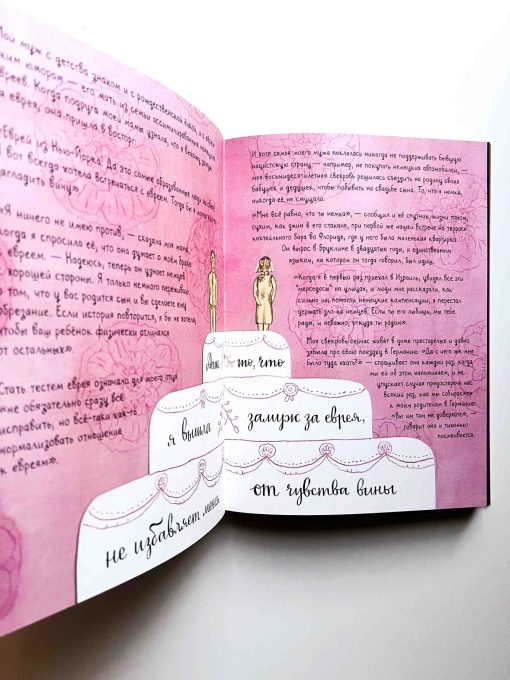 Мой муж с детства знаком и с рождественской ёлкой, и с
юмором — его мать из семьи ассимилированных немецких
евреев. Когда подруга моей мамы узнала, что я выхожу замуж
за еврея, она пришла в восторг:
«Еврей из Нью-Йорка! Да это самые образованные люди на
Я вот всегда хотела встречаться с евреем. Тогда бы я
загладить вину».
«Я ничего не имею против, — сказала моя мама,
когда я спросила её, что она думает о моём браке
с евреем. — Надеюсь, теперь он узнает немцев
с хорошей стороны. Я только немного переживаю
о том, что у вас родится сын и вы сделаете ему
обрезание. Если история повторится, я бы не хотела,
чтобы ваш ребёнок физически отличался
от остальных».
Стать тестем еврея означало для моего отца
«не обязательно сразу всё
исправить, но всё-таки как-то
нормализовать отношение
к евреям».
И хотя семья моего мужа поклялась никогда не поддерживать бывшую
нацистскую страну — например, не покупать немецкие автомобили, —
моя восьмидесятилетняя свекровь решилась съездить на родину своих
бабушек и дедушек, чтобы побывать на свадьбе сына. То, что я немка,
никогда её не смущало.
«Мне всё равно, что ты немка», — сообщил и её спутник жизни тоном,
сухим, как джин в его стакане, при первой же нашей встрече на террасе
коктейльного бара во Флориде, где у него была маленькая квартирка.
Он вырос в Бруклине в двадцатые годы, и единственным
языком, на котором он тогда говорил, был идиш.
«Когда я в первый раз приехал в Израиль, увидел все эти
"мерседесы" на улицах, и люди мне рассказали, как
сильно им помогли немецкие компенсации, я перестал
держать зло на немцев. Если ты его любишь, мы тебе
рады, и неважно, откуда ты родом».
Моя свекровь сейчас живёт в доме престарелых и давно
забыла про свою поездку в Германию. «Да с чего же мне
было туда ехать?» — спрашивает она каждый раз, когда
мы ей об этом напоминаем, и не
упускает случая предостеречь нас
всякий раз, как мы собираемся
к моим родителям в Германию:
«Вы им там не доверяйте», —
говорит она и тихонько
посмеивается.
то, что
я вышла замуж за еврея,
не избавляет меня от чувства вины